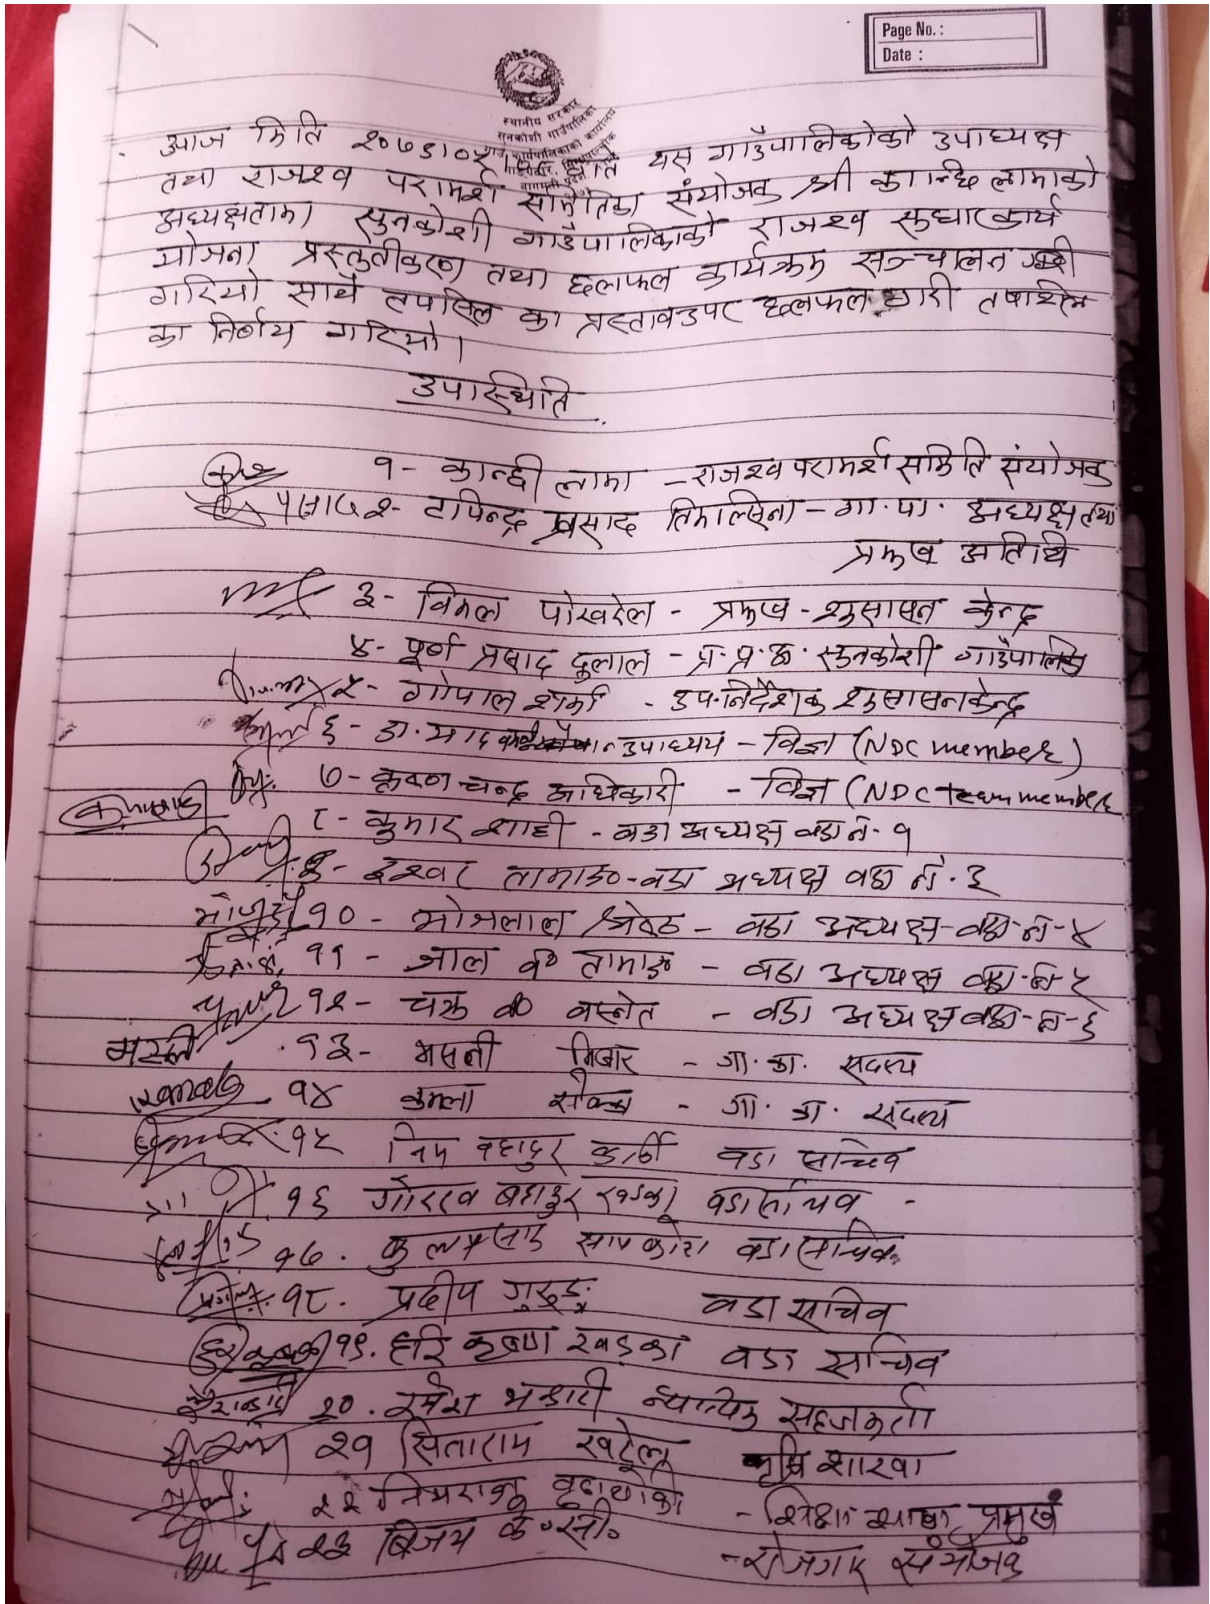 Page No. :
Date :
स्थानीय सरकार
सुनकोशी गाउँपालिका
गाउँ कार्यपालिकाको कार्यालय
आज मिति २०७८।०२ यस गाउँपालिकोको उपाध्यक्ष
तथा राजश्व परामर्श समितिका संयोजक श्री कान्छि लामाको
अध्यक्षतामा सुनकोशी गाउँपालिकाको राजश्व सुधार कार्य
योजना प्रस्तुतीकरण तथा छलफल कार्यक्रम सञ्चालन
गरियो साथै तपसिल का प्रस्तावउपर छलफल गरी तपाशील
का निर्णय गरियो।
उपास्थिति
१- कान्छी लामा - राजश्व परामर्श समिति संयोजक
२- टपिन्द्र प्रसाद तिमल्सिना - गा.पा. अध्यक्ष तथा
प्रमुख अतिथि
३- विमल पोखरेल - प्रमुख - शुसासन केन्द्र
४- पूर्ण प्रसाद दुलाल - प्र.प्र.अ. सुनकोशी गाउँपालिका
५- गोपाल शर्मा - उप.निर्देशक शुसासन केन्द्र
६- डा. उपाध्यय - विज्ञ (NDC member)
७- कृष्ण चन्द्र अधिकारी - विज्ञ (NDC team member
८- कुमार शाही - वडा अध्यक्ष वडा नं. १
९- ईश्वर तामाङ - वडा अध्यक्ष वडा नं. ३
१० - भोजलाल श्रेष्ठ - वडा अध्यक्ष - वडा नं - ४
११ - जाल व० तामाङ - वडा अध्यक्ष वडा नं ५
१२ - चक्र व० वस्नेत - वडा अध्यक्ष वडा - नं - ६
मस्ली १३ - मसली मिजार - गा. का. सदस्य
Kamala १४ कमला - गा. का. सदस्य
१५ निम बहादुर कार्की वडा सचिव
१६ गौरव बहादुर खडका वडा सचिव -
१७. कुल प्रसाद सापकोटा वडा सचिव
१८. प्रदीप गुरुङ वडा सचिव
१९. हरि कृष्ण खड्का वडा सचिव
२० . रमेश भण्डारी न्यायिक सहजकर्ता
२१ सिताराम खरेल कृषि शाखा
२२ बुढाथोकी - शिक्षा शाखा प्रमुख
२३ बिजय के०सी० - रोजगार संयोजक